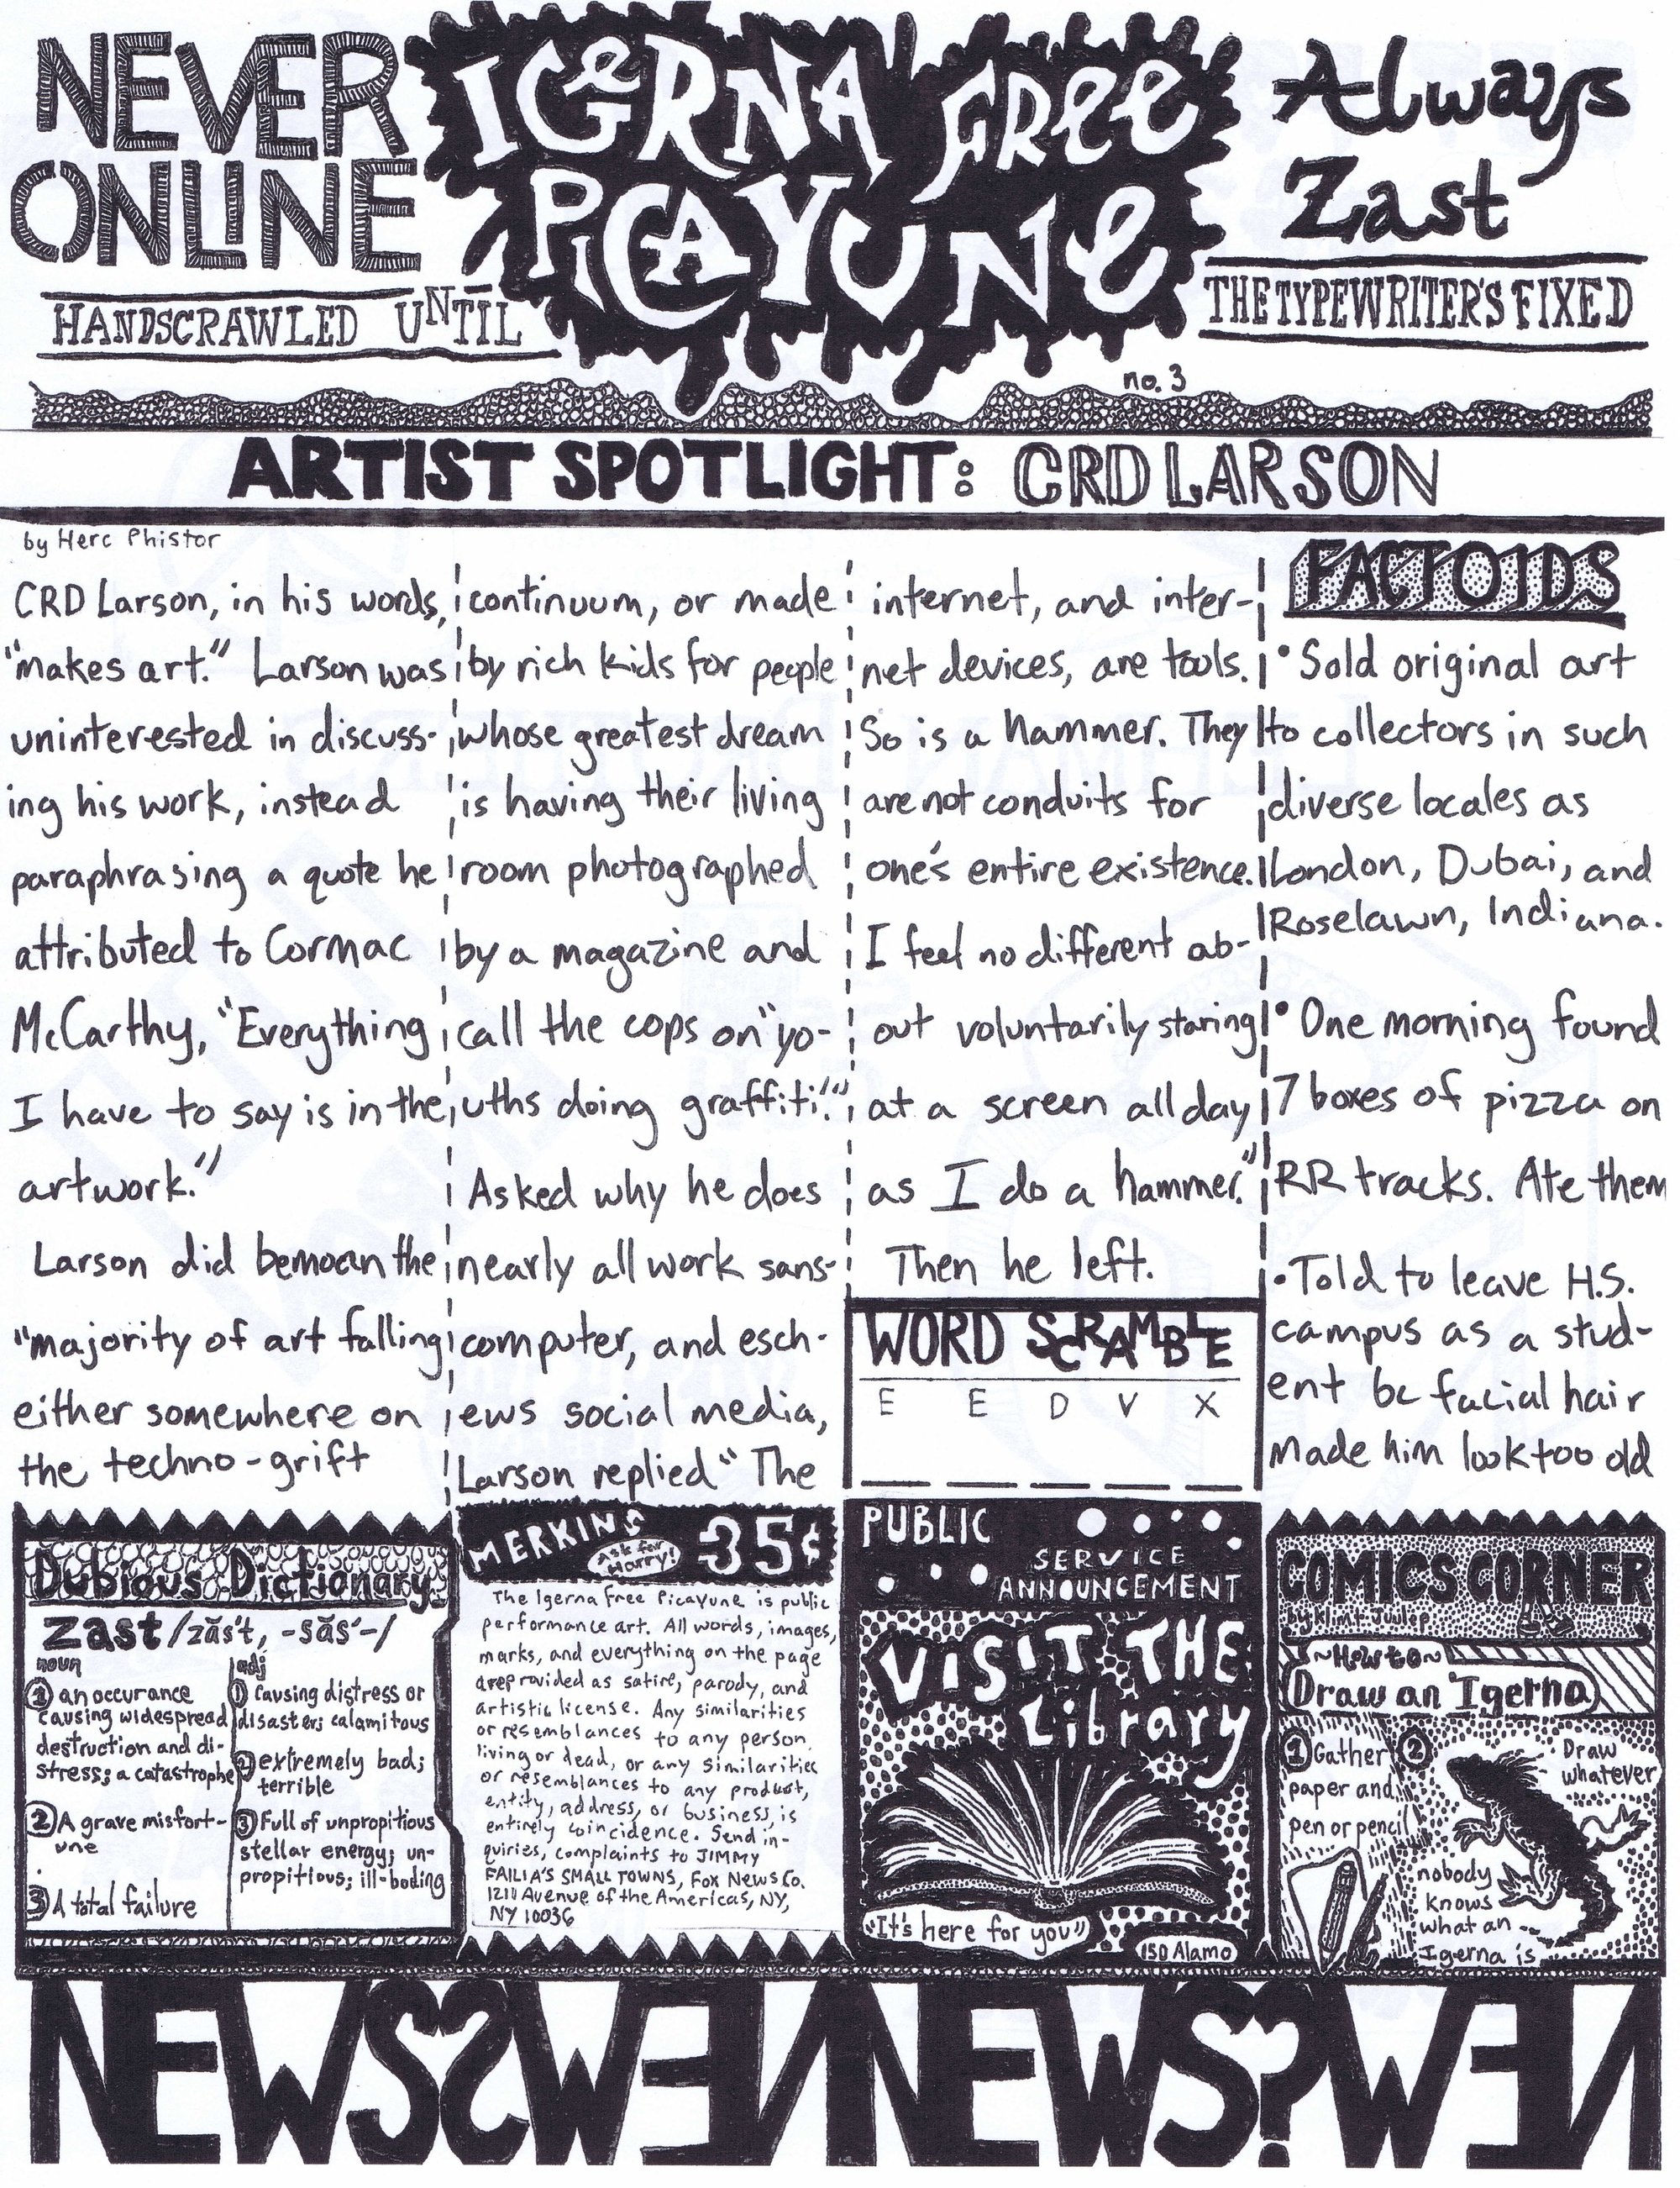 NEVER
ONLINE
HANDSCRAWLED UNTIL
IGERNA FREE
PICAYUNE
Always
Zast
THE TYPEWRITER'S FIXED
no. 3
ARTIST SPOTLIGHT: CRD LARSON
by Herc Phistor
CRD Larson, in his words,
"makes art." Larson was
uninterested in discuss-
ing his work, instead
paraphrasing a quote he
attributed to Cormac
McCarthy, "Everything
I have to say is in the
artwork."
Larson did bemoan the
"majority of art falling
either somewhere on
the techno-grift
continuum, or made
by rich kids for people
whose greatest dream
is having their living
room photographed
by a magazine and
call the cops on "yo-
uths doing graffiti.""
Asked why he does
nearly all work sans-
computer, and esch-
ews social media,
Larson replied "The
internet, and inter-
net devices, are tools.
So is a hammer. They
are not conduits for
one's entire existence.
I feel no different ab-
out voluntarily staring
at a screen all day
as I do a hammer."
Then he left.
WORD SCRAMBLE
E E D V X
FACTOIDS
• Sold original art
to collectors in such
diverse locales as
London, Dubai, and
Roselawn, Indiana.
• One morning found
7 boxes of pizza on
RR tracks. Ate them
• Told to leave H.S.
campus as a stud-
ent bc facial hair
made him look too old
Dubious Dictionary
zast /zăs't, -săs'-/
noun
① an occurance
causing widespread
destruction and di-
stress; a catastrophe
② A grave misfort-
une
③ A total failure
adj
① causing distress or
disaster; calamitous
② extremely bad;
terrible
③ Full of unpropitious
stellar energy; un-
propitious; ill-boding
MERKINS
Ask for
Harry!
35¢
The Igerna Free Picayune is public
performance art. All words, images,
marks, and everything on the page
are provided as satire, parody, and
artistic license. Any similarities
or resemblances to any person,
living or dead, or any similarities
or resemblances to any product,
entity, address, or business, is
entirely coincidence. Send in-
quiries, complaints to JIMMY
FAILIA'S SMALL TOWNS, Fox News Co.
1211 Avenue of the Americas, NY,
NY 10036
PUBLIC
SERVICE
ANNOUNCEMENT
VISIT THE
Library
"It's here for you"
150 Alamo
COMICS CORNER
by Klimt Juulep
~How to~
Draw an Igerna
① Gather
paper and
pen or pencil
② Draw
whatever
nobody
knows
what an
Igerna is
NEWSSWENNEWS?WEN